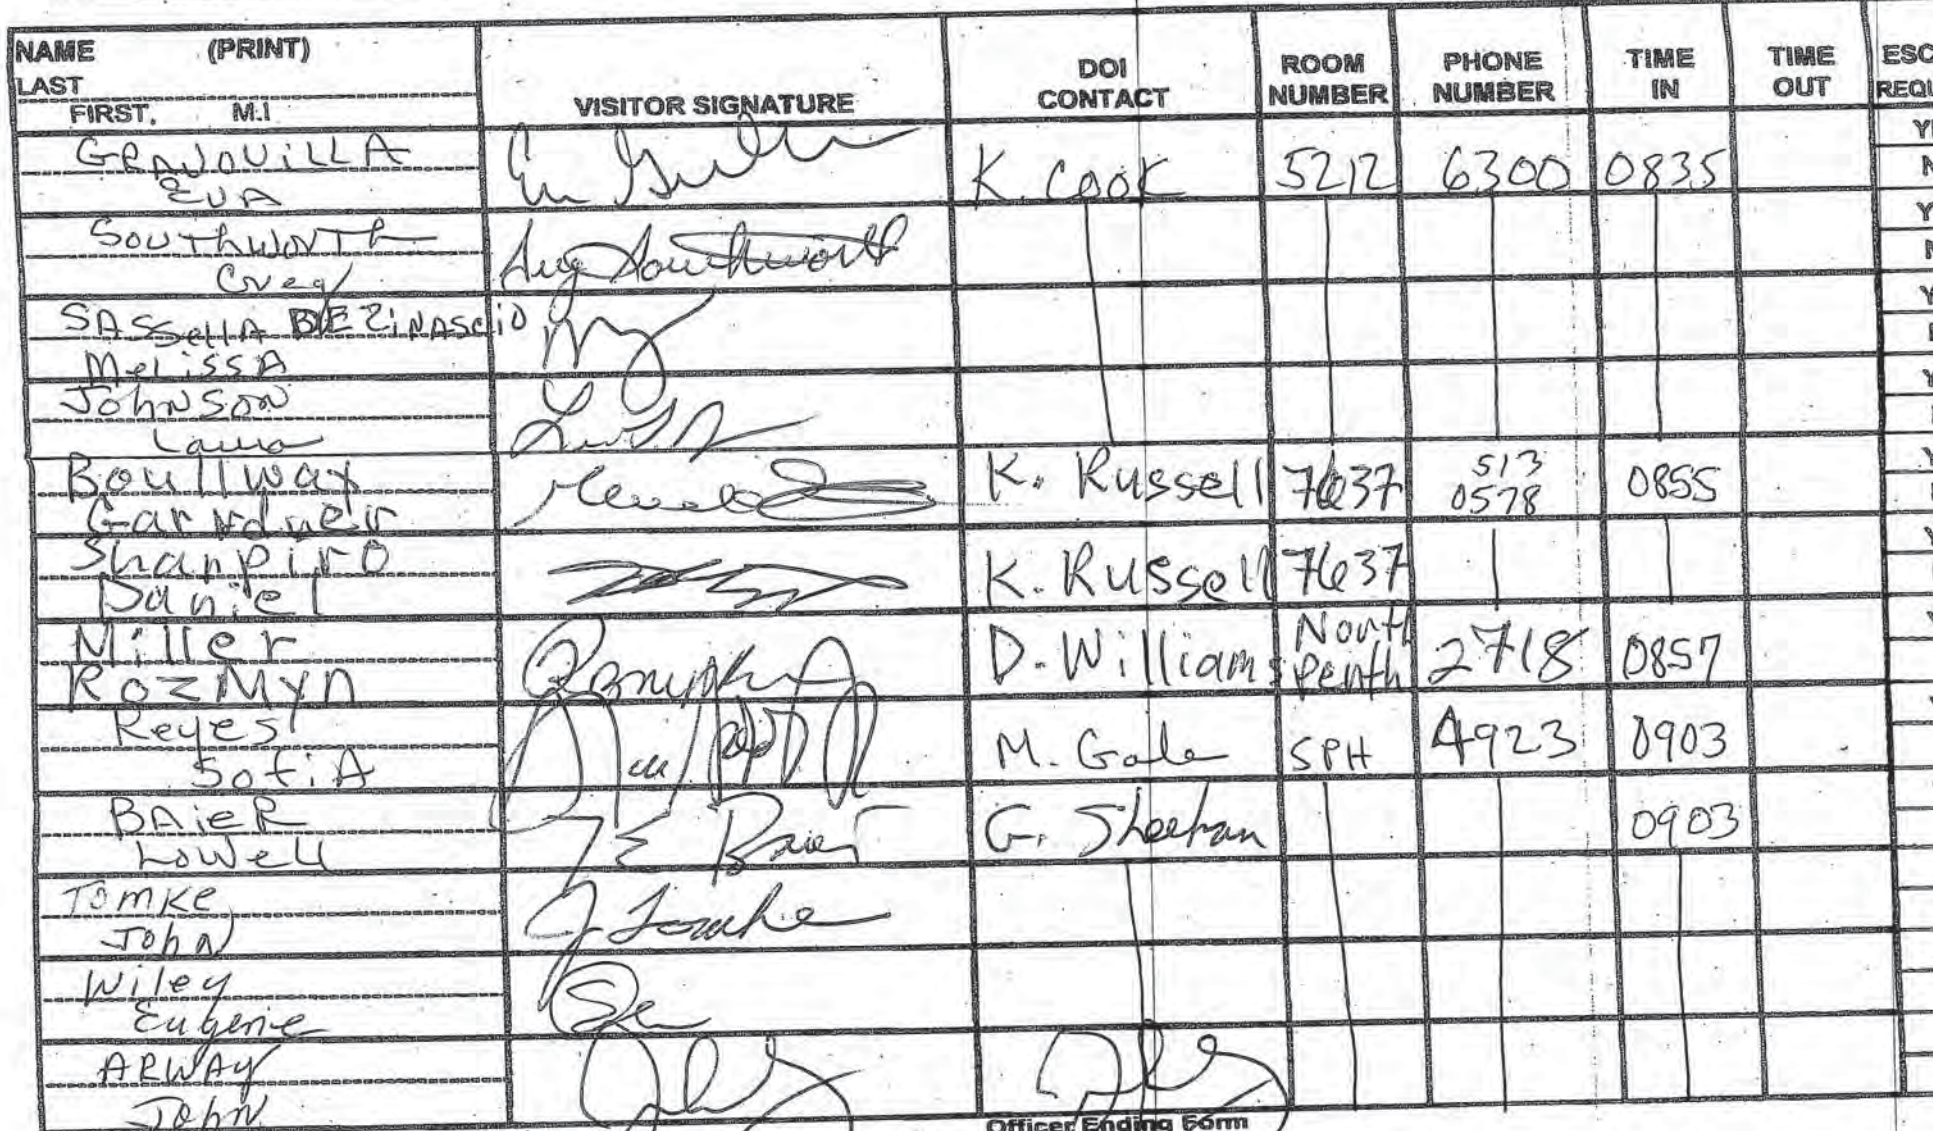 NAME (PRINT)
LAST
FIRST, M.I
VISITOR SIGNATURE
DOI CONTACT
ROOM NUMBER
PHONE NUMBER
TIME IN
TIME OUT
ESC
REQU
GRANOUILLA
EVA
K. Cook 5212 6300 0835
Southworth
Greg
Greg Southworth
SASSellA BEZiNASCiO
MeLissA
JohNSON
Laura
Boullway
Garydner
K. Russell 7637 513 0578 0855
Shanpiro
Daniel
K. Russell 7637
Miller
RozMyn
D. Williams North Penth 2718 0857
Reyes
SofiA
M. Gale SPH 4923 0903
BAieR
Lowell
G. Sheehan 0903
Tomke
John
J Tomke
Wiley
Eugene
ARWAY
John
Officer Ending Form